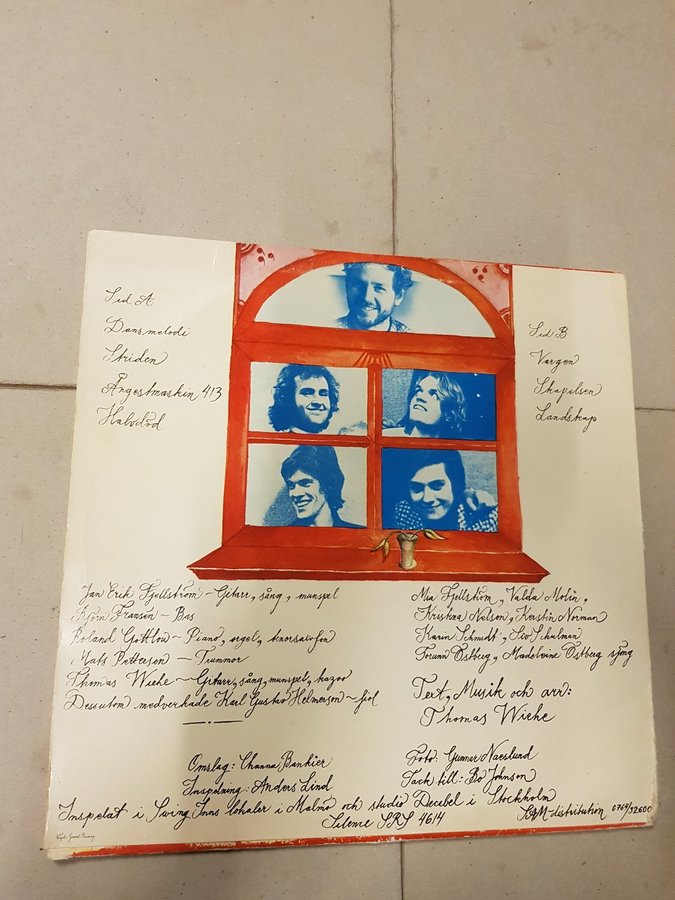 Sid A
Dansmelodi
Striden
Ångestmaskin 413
Halvdöd
Sid B
Vargen
Skapelsen
Landskap
Jan Erik Fjellström - Gitarr, sång, munspel
Björn Fransén - Bas
Roland Gottlow - Piano, orgel, tenorsaxofon
Mats Petterson - Trummor
Thomas Wiehe - Gitarr, sång, munspel, kazoo
Dessutom medverkade Karl Gustav Helmerson - fiol
Mia Fjellström, Valda Molin,
Kristina Nelson, Kerstin Norman
Karin Schmidt, Siv Schulman
Torunn Östberg, Madeleine Östberg sjöng
Text, Musik och arr:
Thomas Wiehe
Omslag: Channa Bankier
Inspelning: Anders Lind
Foto: Gunnar Naeslund
Tack till: Bo Johnson
Inspelat i Swing Inns lokaler i Malmö och studio Decibel i Stockholm
Silence SRS 4614
SAM-distribution 0764/32600